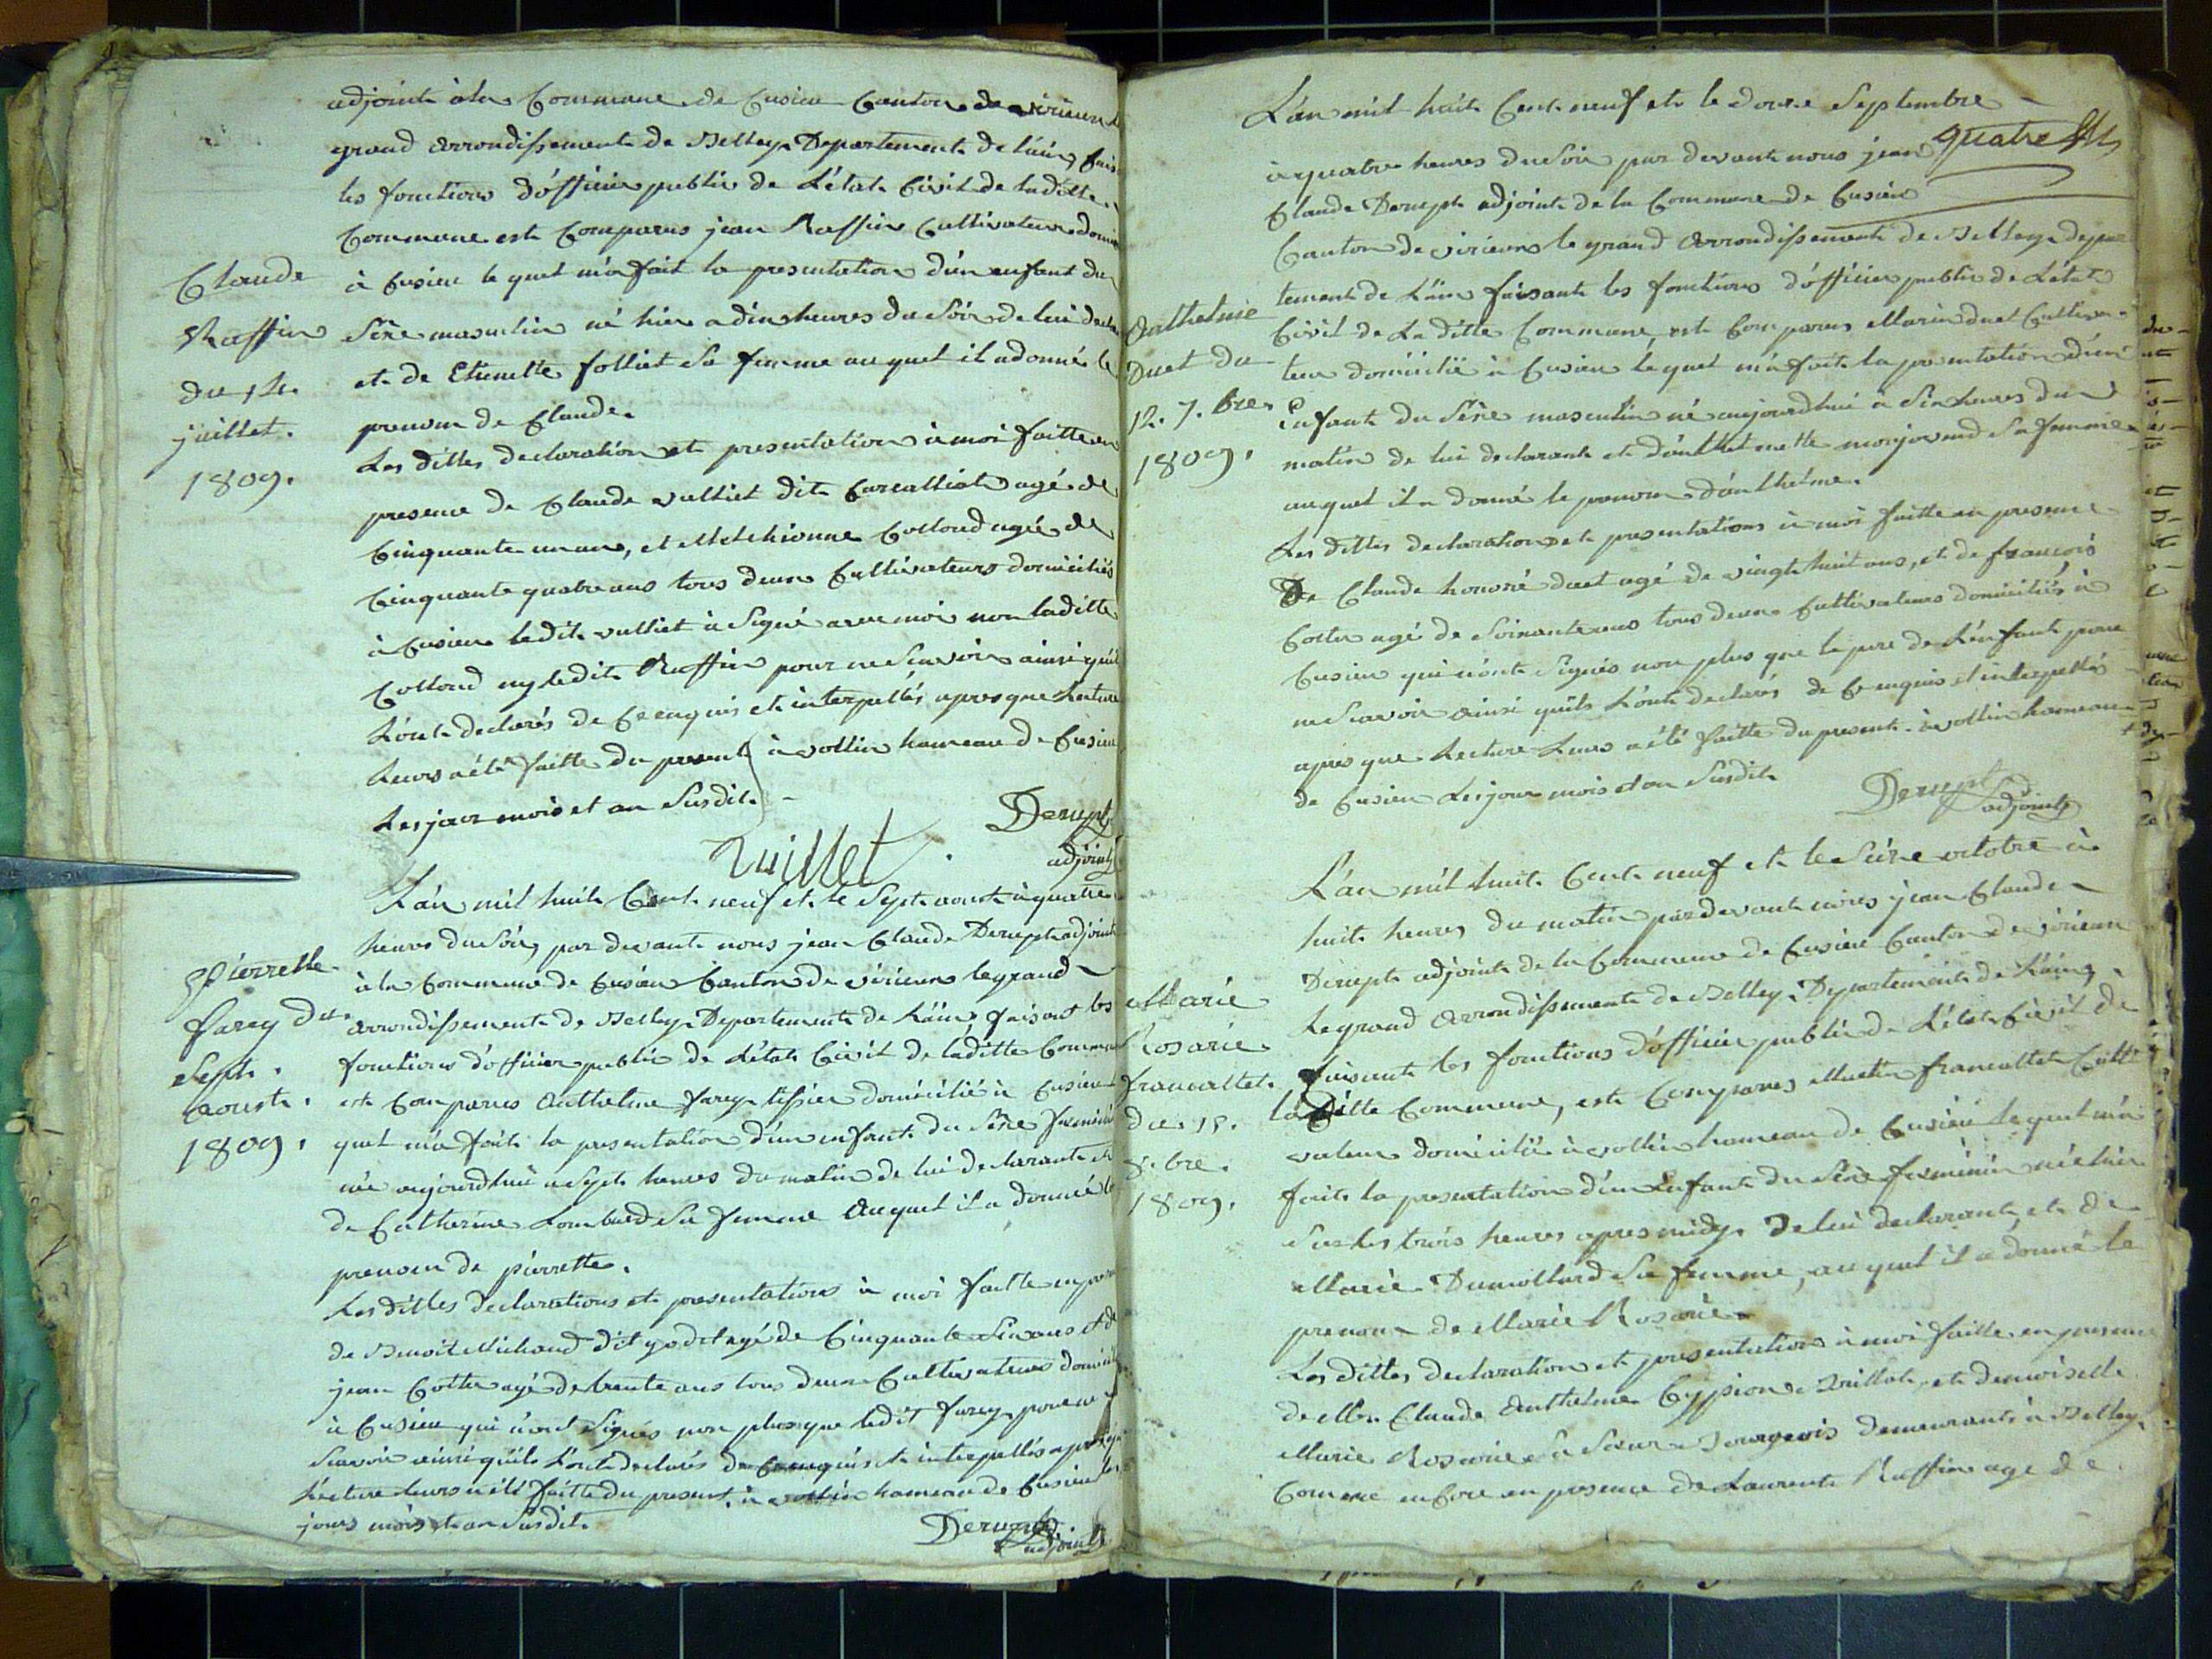 adjoint à la Commune de Cusieu Canton de virieux le
grand arrondissement de Belley Departement de l'ain, fais
les fonctions d'officier public de L'état Civil de laditte
Commune est Comparus jean Raffin Cultivateur domici
à Cusieu le quel m'a fait la presentation d'un enfant du
Sèxe masculin né hier a dix heures du Soir de lui declar
et de Etienette folliet Sa femme auquel il a donné le
prenom de Claude.
Claude
Raffin
du 14.
juillet.
1809.
Les dittes declaration et presentation à moi faitte en
presence de Claude vulliet dit agé de
Cinquante un ans, et Melchionne Colloud agée de
Cinquante quatre ans tous deux Cultivateurs domiciliés
à Cusieu ledit vulliet à Signé avec moi non laditte
Colloud ny ledit Raffin pour ne Scavoir ainsi qu'il
L'ont declarés de Ce enquis et interpellés apres que Lecture
Leurs a été faitte du present à vollin hameau de Cusieu
Les jour mois et an Susdit -
Derupt
adjoint
vuillet
L'an mil huit Cent neuf et le Sept aoust à quatre
heures du Soir, par devant nous jean Claude Derupt adjoint
à la Commune de Cusieu Canton de virieux le grand
arrondissement de Belley Departement de L'ain, faisant les
fonctions d'officier public de L'état Civil de laditte Commune
est Comparus Anthelme farcy tissier domicilié à Cusieu le
quel m'a fait la presentation d'un enfant du Sèxe feminin
née aujourdhui a Sept heures du matin de lui declarant et
de Catherine Lombard Sa femme Auquel il a donné le
prenom de pierrette.
Pierrette
farcy du
Sept.
aoust.
1809.
Les dittes declarations et presentations à moi faitte en pres
de Benoit Michaud dit godet agé de Cinquante Six ans et de
jean Cottin agé de trente ans tous deux Cultivateurs domicil
à Cusieu qui n'ont Signés non plus que ledit farcy pour ne
Scavoir ainsi qu'ils L'ont declarés de Ce enquis et interpellés apres que
Lecture leurs a été faitte du present. à vollin hameau de Cusieu les
jours mois et an Susdit.
Derupt
adjoint
L'an mil huit Cent neuf et le douze Septembre
quatre
à quatre heures du Soir par devant nous jean
Claude Derupt adjoint de la Commune de Cusieu
Canton de virieux le grand arrondissement de Belley depar
tement de L'ain faisant les fonctions d'officier public de L'état
Civil de La ditte Commune, est Comparus Marin duet Cultiva-
teur domicilié à Cusieu le quel m'a fait la presentation d'un
Enfant du Sèxe masculin né aujourdhui à Six heures du
matin de lui declarant et d'anthelmette monjovend Sa femme
auquel il a donné le prenom d'anthelme.
Anthelme
Duet du
12. 7. bre.
1809.
Les dittes declarations et presentations à moi faitte en presence
De Claude honoré duet agé de vingt huit ans, et de françois
Cottin agé de Soixante ans tous deux Cultivateurs domiciliés à
Cusieu qui n'ont Signés non plus que le pere de L'enfant pour
ne Scavoir ainsi qu'ils L'ont declarés de Ce enquis et interpellés
apres que Lecture Leurs a été faitte du present. à vollin hameau
de Cusieu Les jour mois et an Susdit
Derupt
adjoint
L'an mil huit Cent neuf et le Seize octobre à
huit heures du matin par devant nous jean Claude
Derupt adjoint de la Commune de Cusieu Canton de virieux
Le grand arrondissement de Belley Departement de L'ain,
faisant les fonctions d'officier public de L'état Civil de
la ditte Commune, est Comparus Martin francallet Culti
vateur domicilié à vollin hameau de Cusieu lequel m'a
fait la presentation d'un Enfant du Sèxe feminin née hier
Sur les trois heures apres midy. De lui declarant, et de
Marie Dumollard Sa femme, au quel il a donné le
prenom de Marie Rosarie.
Marie
Rosarie
francallet.
du. 15.
8. bre.
1809.
Les dittes declaration et presentation à moi faitte en presence
de Mr. Claude Anthelme Cyprien Vuillot, et demoiselle
Marie Rosarie Sa Sœur Bourgeois demeurants à Belley.
Comme enCore en presence de Laurent Raffin agé de